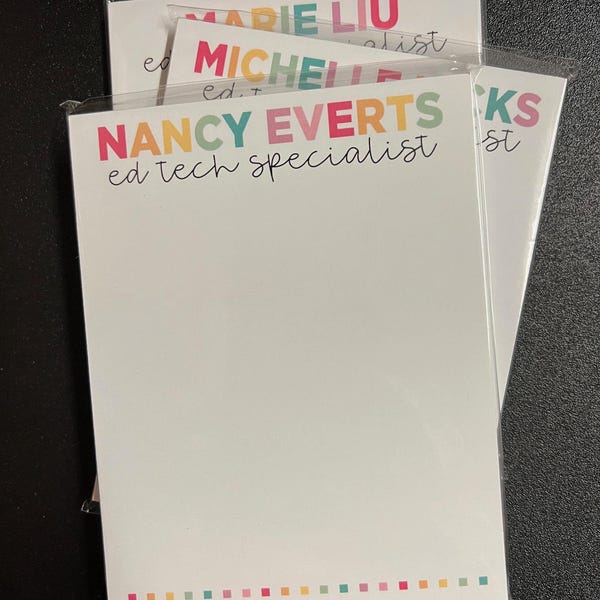 MARIE LIU
ed specialist
MICHELLE CKS
ed
NANCY EVERTS
ed tech specialist